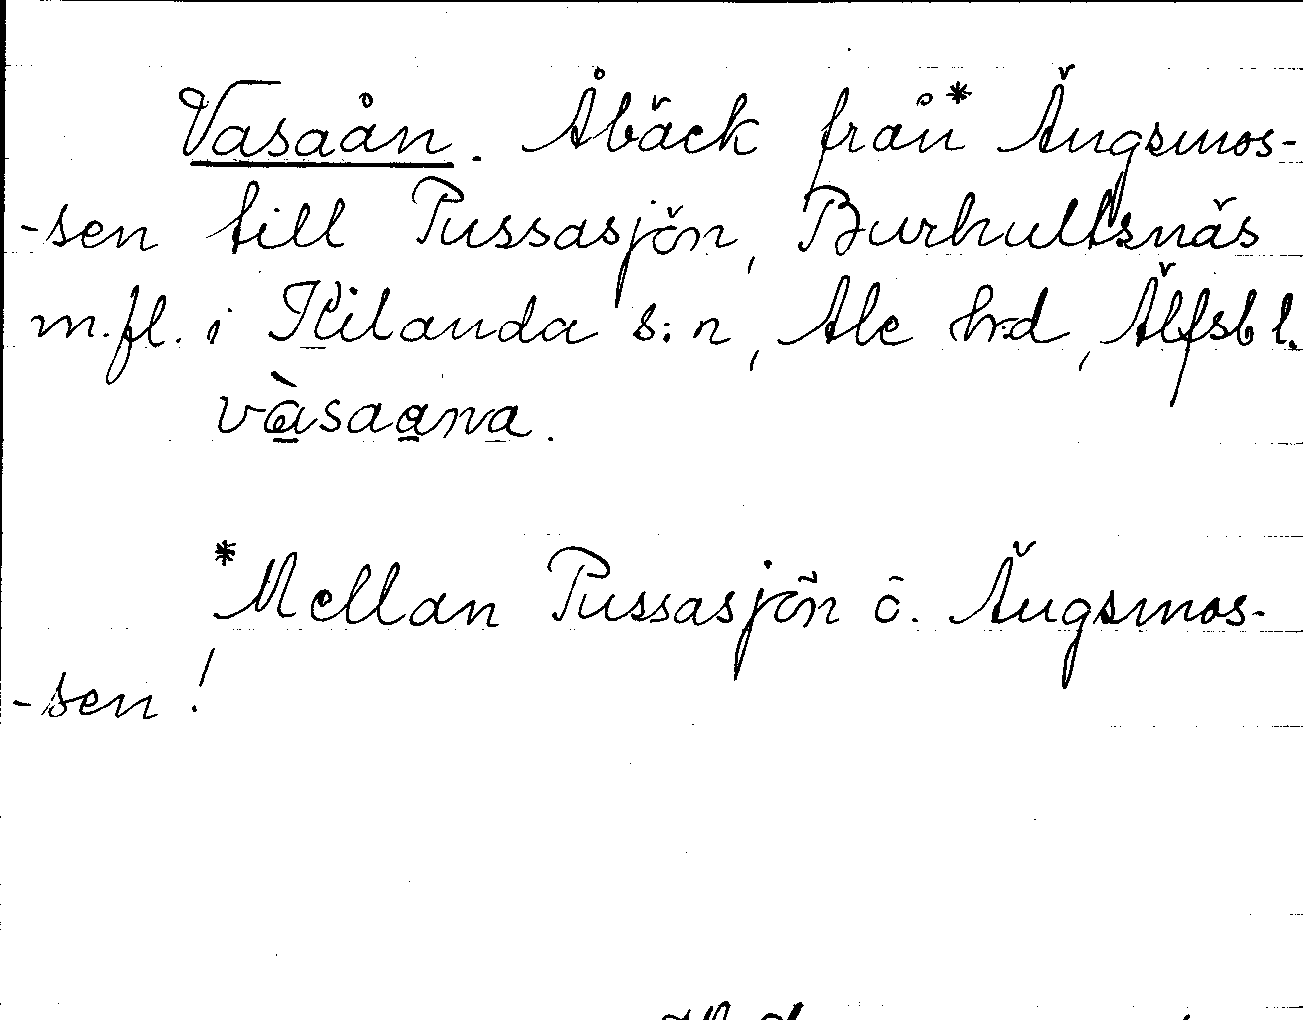 Vasaån. Åbäck från* Ängsmos-
-sen till Pussasjön, Burhultsnäs
m.fl. i Kilanda s:n, Ale h:d, Älfsb l.
vàsaana.
*Mellan Pussasjön o. Ängsmos-
-sen!